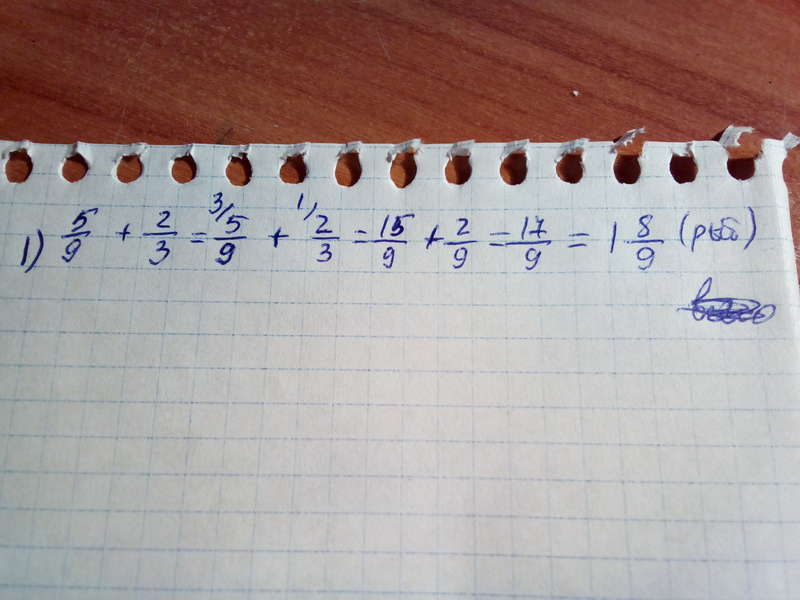 1) 5/9 + 2/3 = 3/ 5/9 + 1/ 2/3 = 15/9 + 2/9 = 17/9 = 1 8/9 (рыб)